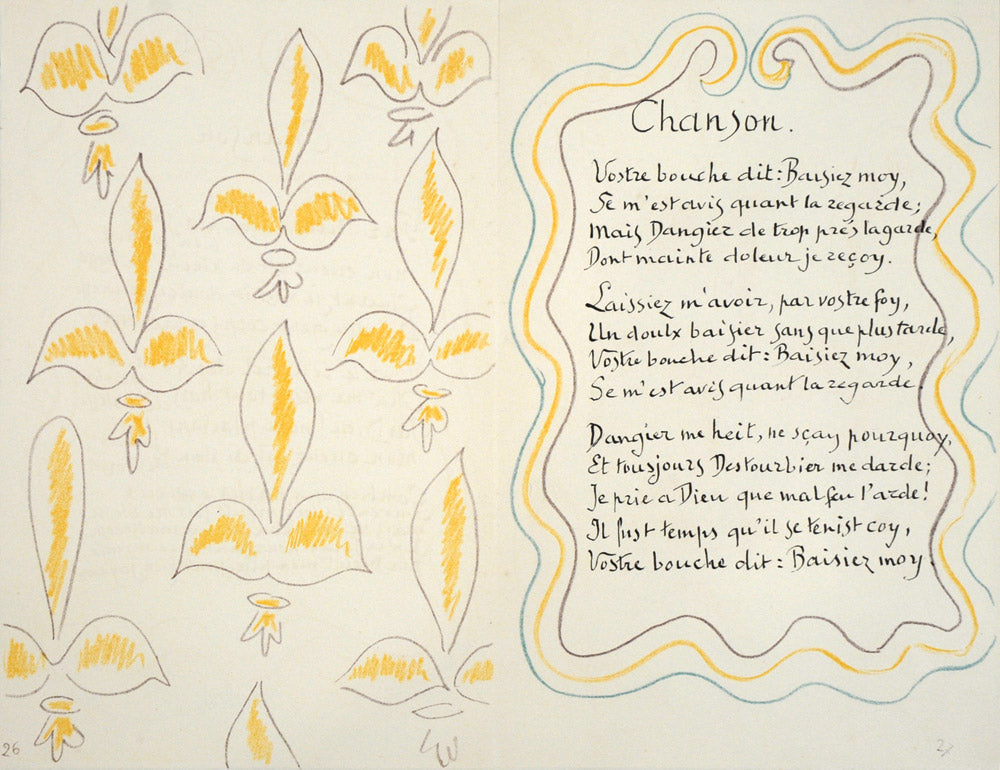 26
Chanson.
Vostre bouche dit: Baisiez moy,
Se m'est avis quant la regarde;
Mais Dangier de trop prés la garde,
Dont mainte doleur je reçoy.
Laissiez m'avoir, par vostre foy,
Un doulx baisier sans que plus tarde,
Vostre bouche dit: Baisiez moy,
Se m'est avis quant la regarde.
Dangier me heit, ne sçay pourquoy,
Et tousjours Destourbier me darde;
Je prie a Dieu que mal feu l'arde!
Il fust temps qu'il se tenist coy,
Vostre bouche dit: Baisiez moy.